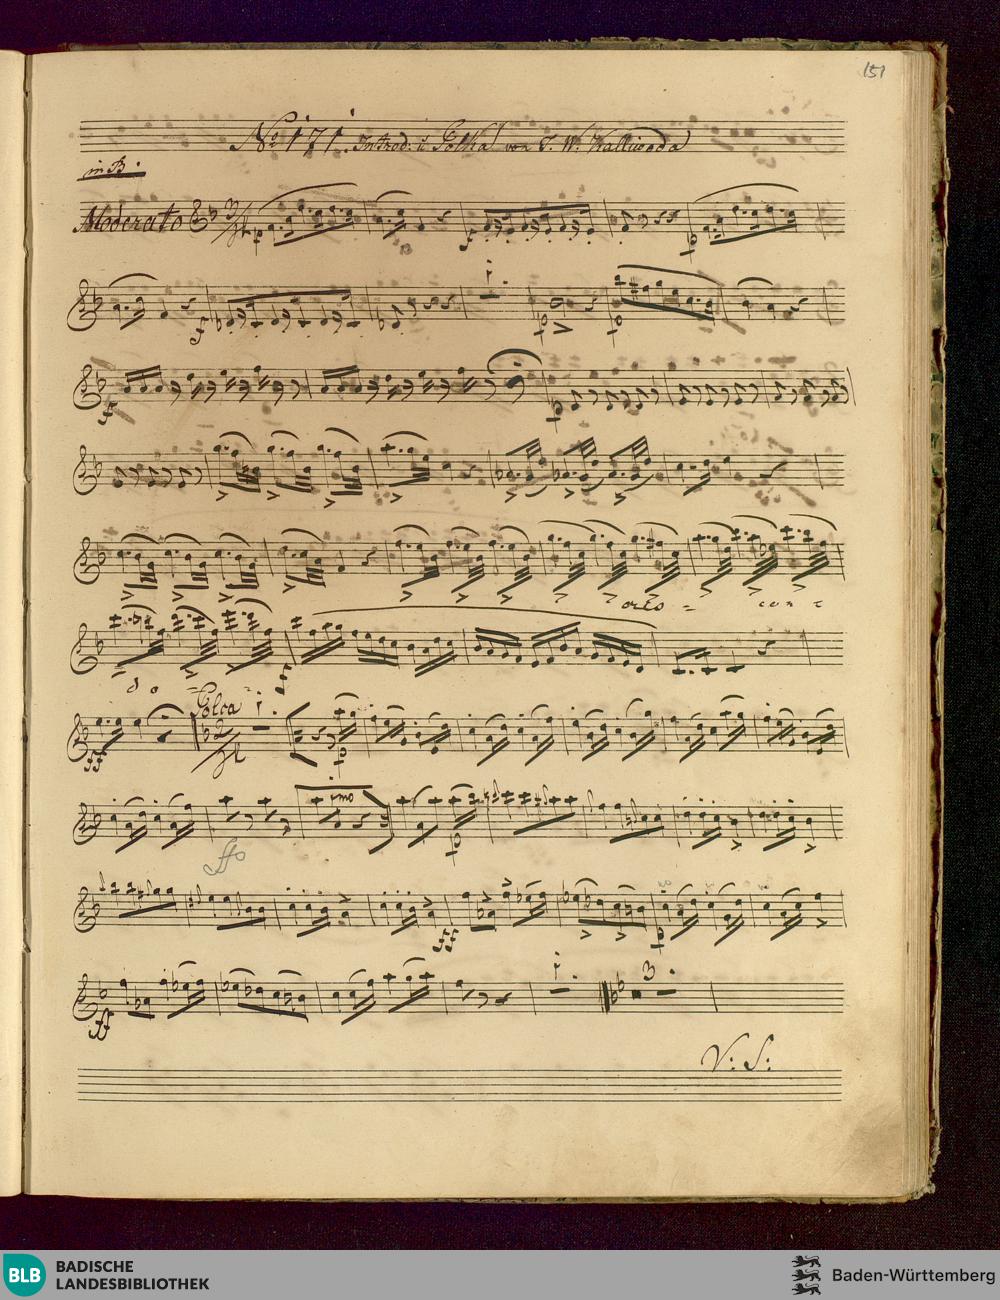 151
No 171. Introd: u Polka von J. W. Kalliwoda
in B.
Moderato
p
f
p
f
1.
p
p
f
p
cres = cen =
do =
ff
ff
Polca
1.
p
1mo
p
ff
p
ff
1.
3
V: S:
BLB BADISCHE LANDESBIBLIOTHEK
Baden-Württemberg